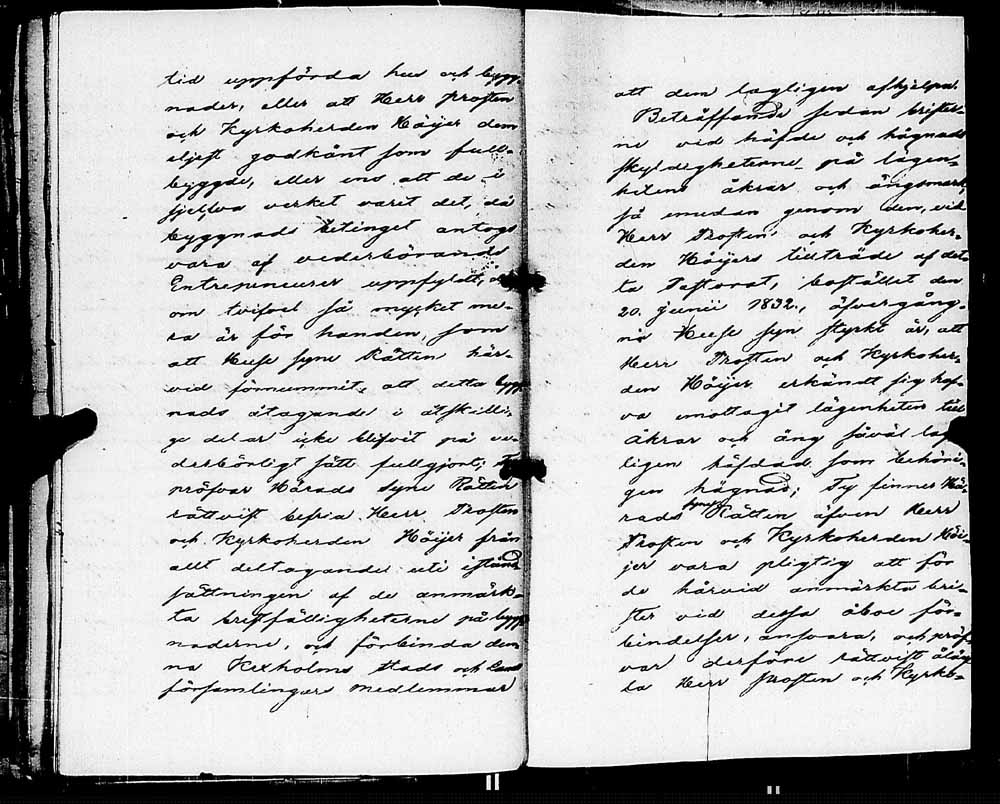 tid uppförda hus och bygg-
nader, eller att Herr Prosten
och Kyrkoherden Höijer dem
eljest godkänt som full-
byggde, eller ens att de i
sjelfva verket varit det, då
byggnads betinget antogs
vara af vederbörande
Entrepreneurer uppfyldt,
om tvifvel så mycket me-
ra är för handen, som
att Heese Syne Rätten här-
vid förnummit, att detta bygg-
nads åtagande i åtskilli-
ge delar icke blifvit på ve-
derbörligt sätt fullgjort;
pröfvar Härads Syne Rätten
rättvist befria Herr Prosten
och Kyrkoherden Höijer från
allt deltagande uti istånd
sättningen af de anmärk-
ta bristfälligheterne på bygg-
naderne, och förbinda den-
na Kexholms stads och Lands
församlingars medlemmar
att dem lagligen afhjelpa.
Beträffande sedan brister-
ne vid häfde och hägnads
skyldigheterne på lägen-
hetens åkrar och ängsmark,
så emedan genom den, vid
Herr Prosten och Kyrkoher-
den Höijers tillträde af det-
ta Pastorat, bestäldt den
20. Junii 1832., öfvergång-
na Heese syn styrkt är, att
Herr Prosten och Kyrkoher-
den Höijer erkändt sig haf-
va emottagit lägenheten till
åkrar och äng såväl lag-
ligen häfdad som behöri-
gen hägnad; Ty finner Hä-
rads Syne Rätten äfven Herr
Prosten och Kyrkoherden Höi-
jer vara pligtig att för
de härvid anmärkta bri-
ster vid dessa åboe för-
bindelser, ansvara, och pröf-
var derföre rättvist åläg-
ga Herr Prosten och Kyrko-